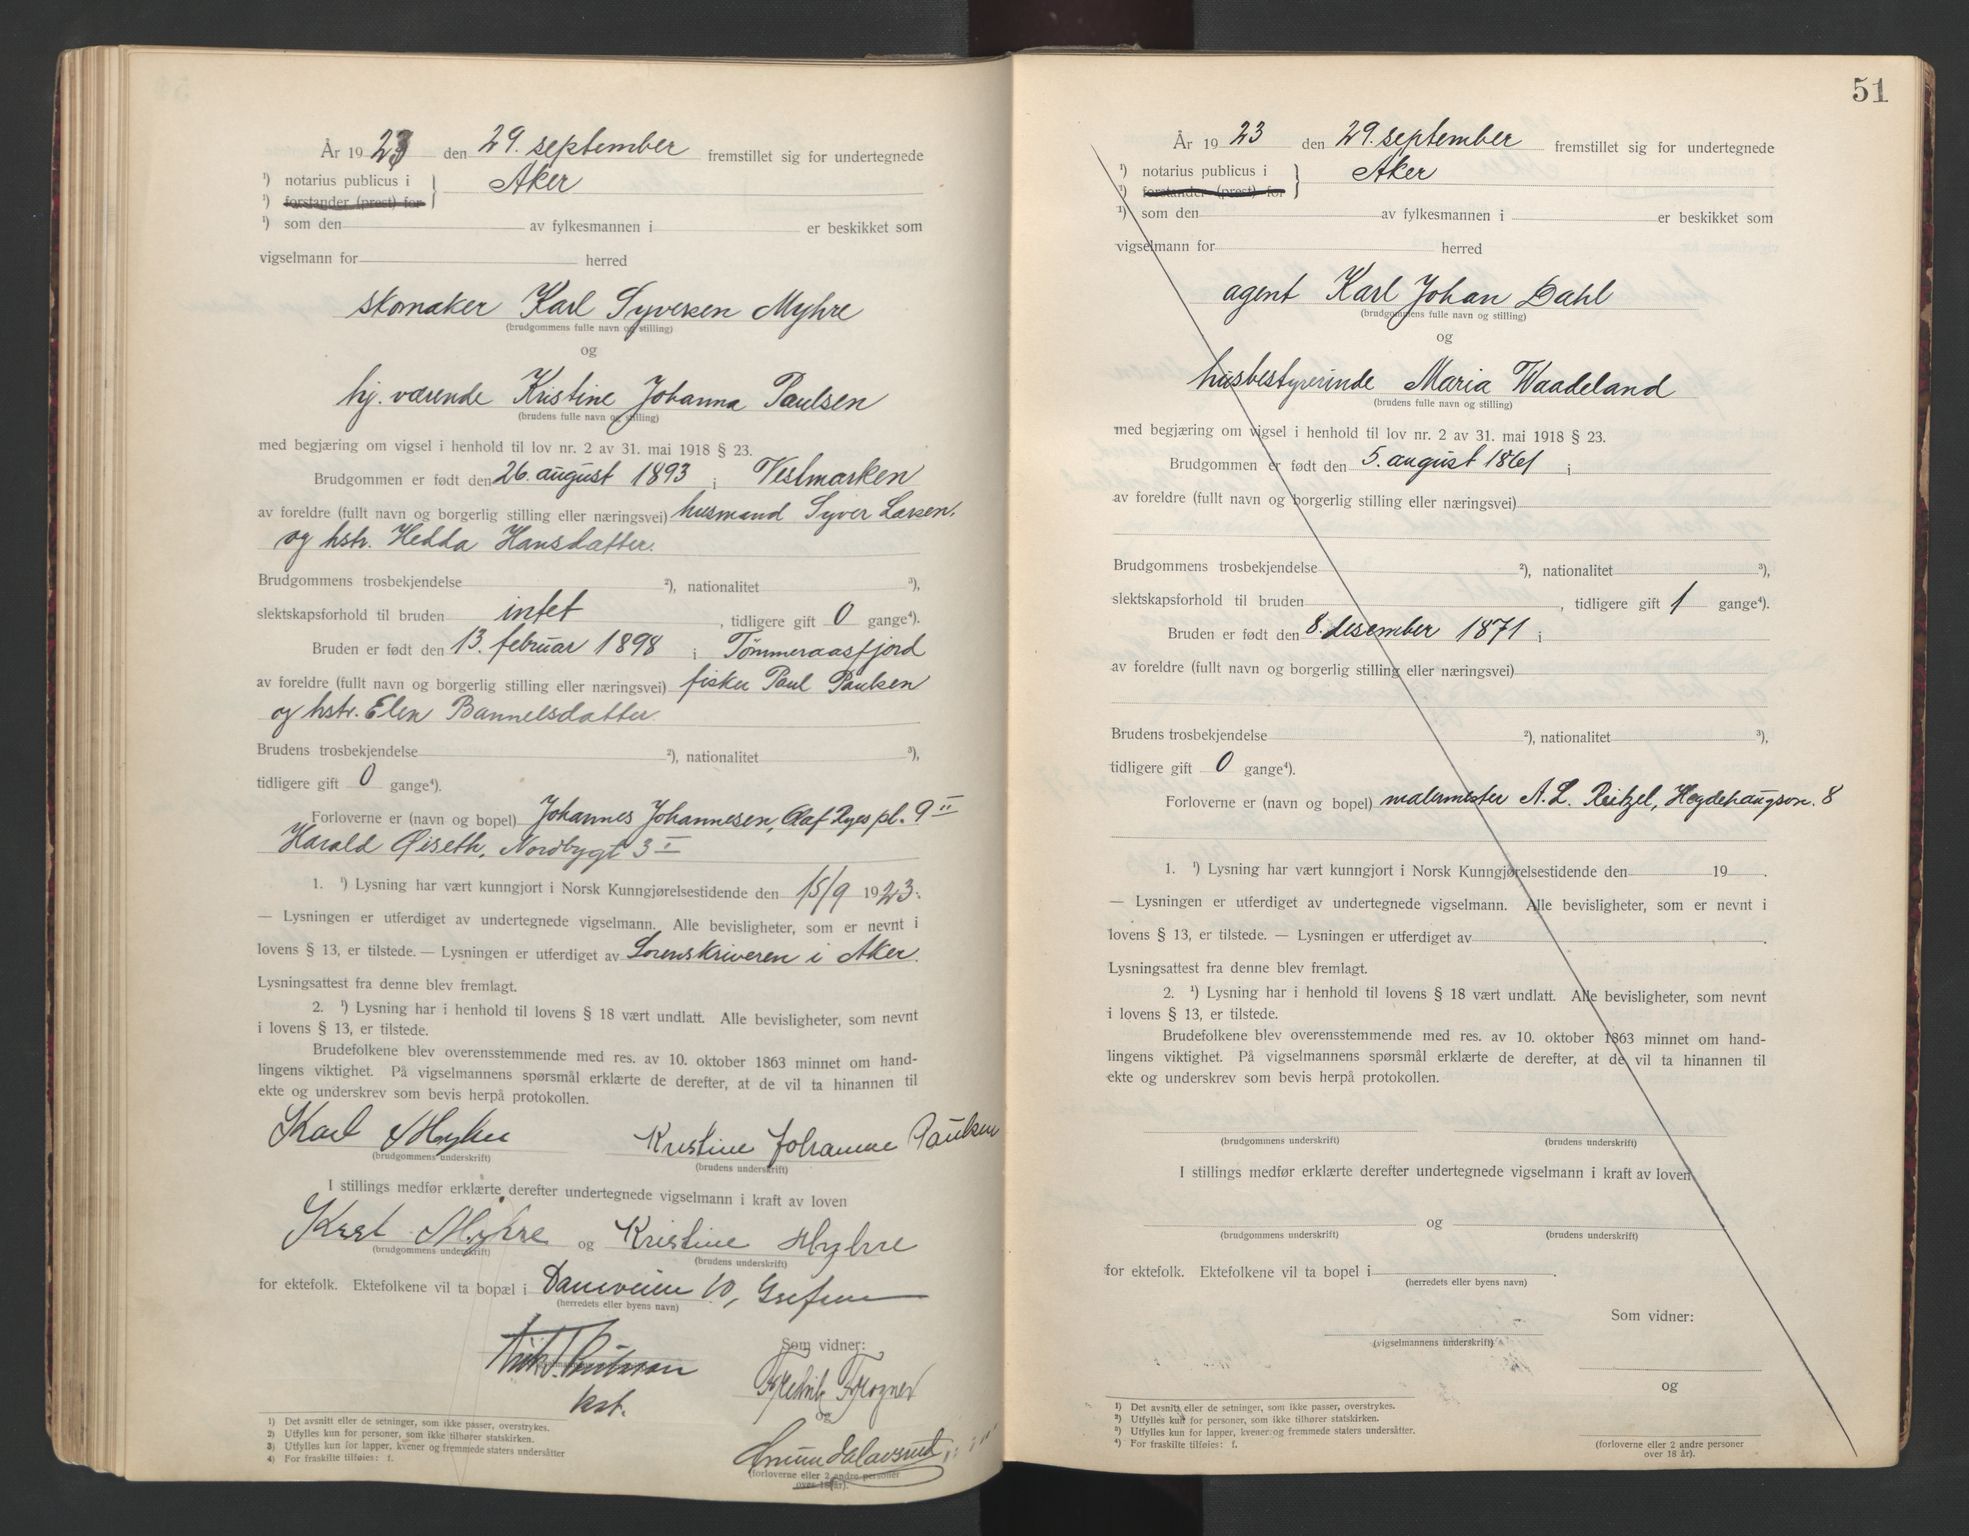 År 1923 den 29. september fremstillet sig for undertegnede
¹) notarius publicus i } Aker
¹) forstander (prest) for
¹) som den av fylkesmannen i er beskikket som
vigselmann for herred
skomaker Karl Syversen Myhre
(brudgommens fulle navn og stilling)
og
hj. værende Kristine Johanna Paulsen
(brudens fulle navn og stilling)
med begjæring om vigsel i henhold til lov nr. 2 av 31. mai 1918 § 23.
Brudgommen er født den 26. august 1893 i Vestmarken
av foreldre (fullt navn og borgerlig stilling eller næringsvei) husmand Syver Larsen.
og hstr. Hedda Hansdatter.
Brudgommens trosbekjendelse ²), nationalitet ³),
slektskapsforhold til bruden intet , tidligere gift 0 gange⁴).
Bruden er født den 13. februar 1898 i Tømmeraasfjord
av foreldre (fullt navn og borgerlig stilling eller næringsvei) fisker Paul Paulsen
og hstr. Elen Bannelsdatter.
Brudens trosbekjendelse ²), nationalitet ³),
tidligere gift 0 gange⁴).
Forloverne er (navn og bopel) Johannes Johannesen, Olaf Ryes pl. 9 II
Harald Øiseth, Nordbygt 3 I
1. ¹) Lysning har vært kunngjort i Norsk Kunngjørelsestidende den 15/9 1923.
— Lysningen er utferdiget av undertegnede vigselmann. Alle bevisligheter, som er nevnt i
lovens § 13, er tilstede. — Lysningen er utferdiget av Sorenskriveren i Aker.
Lysningsattest fra denne blev fremlagt.
2. ¹) Lysning har i henhold til lovens § 18 vært undlatt. Alle bevisligheter, som nevnt
i lovens § 13, er tilstede.
Brudefolkene blev overensstemmende med res. av 10. oktober 1863 minnet om hand-
lingens viktighet. På vigselmannens spørsmål erklærte de derefter, at de vil ta hinannen til
ekte og underskrev som bevis herpå protokollen.
Karl Myhre Kristine Johanne Paulsen
(brudgommens underskrift) (brudens underskrift)
I stillings medfør erklærte derefter undertegnede vigselmann i kraft av loven
Karl Myhre og Kristine Myhre
(brudgommens underskrift) (brudens underskrift)
for ektefolk. Ektefolkene vil ta bopæl i Damveien 10, Grefsen
(herredets eller byens navn)
Som vidner:
kst. Fredrik Frogner
og
(forloverne eller 2 andre personer
over 18 år).
1) Det avsnitt eller de setninger, som ikke passer, overstrykes.
2) Utfylles kun for personer, som ikke tilhører statskirken.
3) Utfylles kun for lapper, kvener og fremmede staters undersåtter
4) For fraskilte tilføies: f.
51
År 1923 den 29. september fremstillet sig for undertegnede
¹) notarius publicus i } Aker
¹) forstander (prest) for
¹) som den av fylkesmannen i er beskikket som
vigselmann for herred
agent Karl Johan Dahl
(brudgommens fulle navn og stilling)
og
husbestyrerinde Maria Waadeland
(brudens fulle navn og stilling)
med begjæring om vigsel i henhold til lov nr. 2 av 31. mai 1918 § 23.
Brudgommen er født den 5. august 1861 i
av foreldre (fullt navn og borgerlig stilling eller næringsvei)
Brudgommens trosbekjendelse ²), nationalitet ³),
slektskapsforhold til bruden , tidligere gift 1 gange⁴).
Bruden er født den 8. desember 1871 i
av foreldre (fullt navn og borgerlig stilling eller næringsvei)
Brudens trosbekjendelse ²), nationalitet ³),
tidligere gift 0 gange⁴).
Forloverne er (navn og bopel) malermester A. L. Reitzel, Hegdehaugsvn. 8
1. ¹) Lysning har vært kunngjort i Norsk Kunngjørelsestidende den 19 .
— Lysningen er utferdiget av undertegnede vigselmann. Alle bevisligheter, som er nevnt i
lovens § 13, er tilstede. — Lysningen er utferdiget av .
Lysningsattest fra denne blev fremlagt.
2. ¹) Lysning har i henhold til lovens § 18 vært undlatt. Alle bevisligheter, som nevnt
i lovens § 13, er tilstede.
Brudefolkene blev overensstemmende med res. av 10. oktober 1863 minnet om hand-
lingens viktighet. På vigselmannens spørsmål erklærte de derefter, at de vil ta hinannen til
ekte og underskrev som bevis herpå protokollen.
(brudgommens underskrift) (brudens underskrift)
I stillings medfør erklærte derefter undertegnede vigselmann i kraft av loven
og
(brudgommens underskrift) (brudens underskrift)
for ektefolk. Ektefolkene vil ta bopel i .
(herredets eller byens navn)
Som vidner:
(vigselmannens underskrift)
og
(forloverne eller 2 andre personer
over 18 år).
¹) Det avsnitt eller de setninger, som ikke passer, overstrykes.
²) Utfylles kun for personer, som ikke tilhører statskirken.
³) Utfylles kun for lapper, kvener og fremmede staters undersåtter.
⁴) For fraskilte tilføies: f.